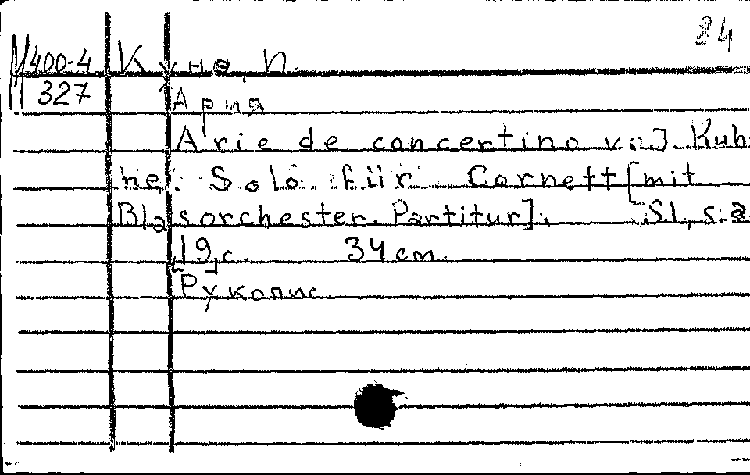 84
М400-4 Куне, И.
327 Ария
Arie de concertino v. J. Kuh-
ne. Solo für Cornett [mit
Blasorchester. Partitur]. Sl, s.a
19 с. 34 cm.
Рукопис